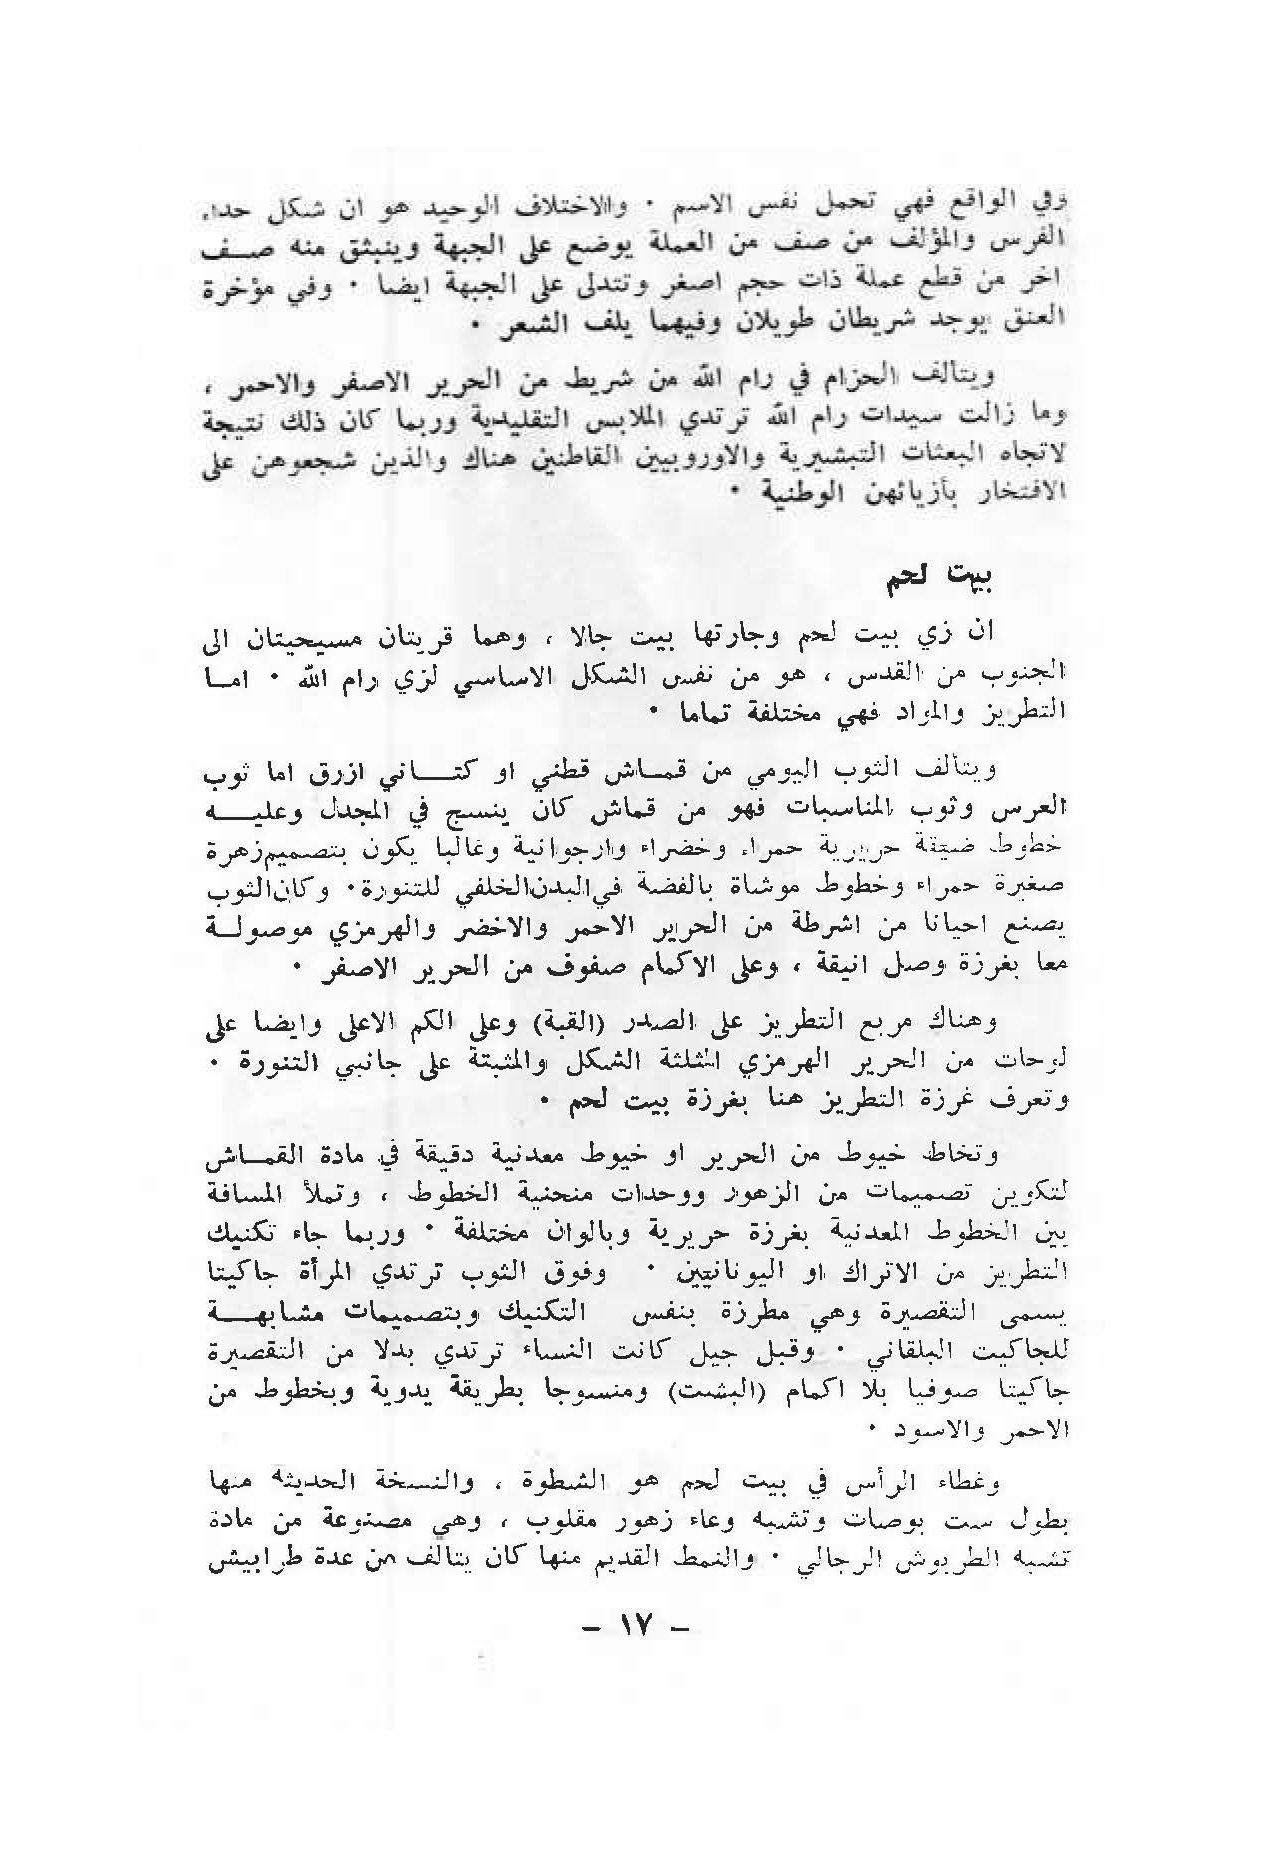 وفي الواقع فهي تحمل نفس الاسم ٠ والاختلاف الوحيد هو ان شكل حداء
الفرس والمؤلف من صف من العملة يوضع على الجبهة وينبثق منه صف
اخر من قطع عملة ذات حجم اصغر وتتدلى على الجبهة ايضا ٠ وفي مؤخرة
العنق يوجد شريطان طويلان وفيهما يلف الشعر ٠
ويتألف الحزام في رام الله من شريط من الحرير الاصفر والاحمر ،
وما زالت سيدات رام الله ترتدي الملابس التقليدية وربما كان ذلك نتيجة
لاتجاه البعثات التبشيرية والاوروبيين القاطنين هناك والذين شجعوهن على
الافتخار بأزيائهن الوطنية ٠
بيت لحم
ان زي بيت لحم وجارتها بيت جالا ، وهما قريتان مسيحيتان الى
الجنوب من القدس ، هو من نفس الشكل الاساسي لزي رام الله ٠ اما
التطريز والمواد فهي مختلفة تماما ٠
ويتألف الثوب اليومي من قماش قطني او كتاني ازرق اما ثوب
العرس وثوب المناسبات فهو من قماش كان ينسج في المجدل وعليه
خطوط ضيقة حريرية حمراء وخضراء وارجوانية وغالبا يكون بتصميم زهرة
صغيرة حمراء وخطوط موشاة بالفضة في البدن الخلفي للتنورة ٠ وكان الثوب
يصنع احيانا من اشرطة من الحرير الاحمر والاخضر والهرمزي موصولة
معا بغرزة وصل انيقة ، وعلى الاكمام صفوف من الحرير الاصفر ٠
وهناك مربع التطريز على الصدر (القبة) وعلى الكم الاعلى وايضا على
لوحات من الحرير الهرمزي المثلثة الشكل والمثبتة على جانبي التنورة ٠
وتعرف غرزة التطريز هنا بغرزة بيت لحم ٠
وتخاط خيوط من الحرير او خيوط معدنية دقيقة في مادة القماش
لتكوين تصميمات من الزهور ووحدات منحنية الخطوط ، وتملأ المسافة
بين الخطوط المعدنية بغرزة حريرية وبالوان مختلفة ٠ وربما جاء تكنيك
التطريز من الاتراك او اليونانيين ٠ وفوق الثوب ترتدي المرأة جاكيتا
يسمى التقصيرة وهي مطرزة بنفس التكنيك وبتصميمات مشابهة
للجاكيت البلقاني ٠ وقبل جيل كانت النساء ترتدي بدلا من التقصيرة
جاكيتا صوفيا بلا اكمام (البشت) ومنسوجا بطريقة يدوية وبخطوط من
الاحمر والاسود ٠
وغطاء الرأس في بيت لحم هو الشطوة ، والنسخة الحديثة منها
بطول ست بوصات وتشبه وعاء زهور مقلوب ، وهي مصنوعة من مادة
تشبه الطربوش الرجالي ٠ والنمط القديم منها كان يتألف من عدة طرابيش
– ١٧ –